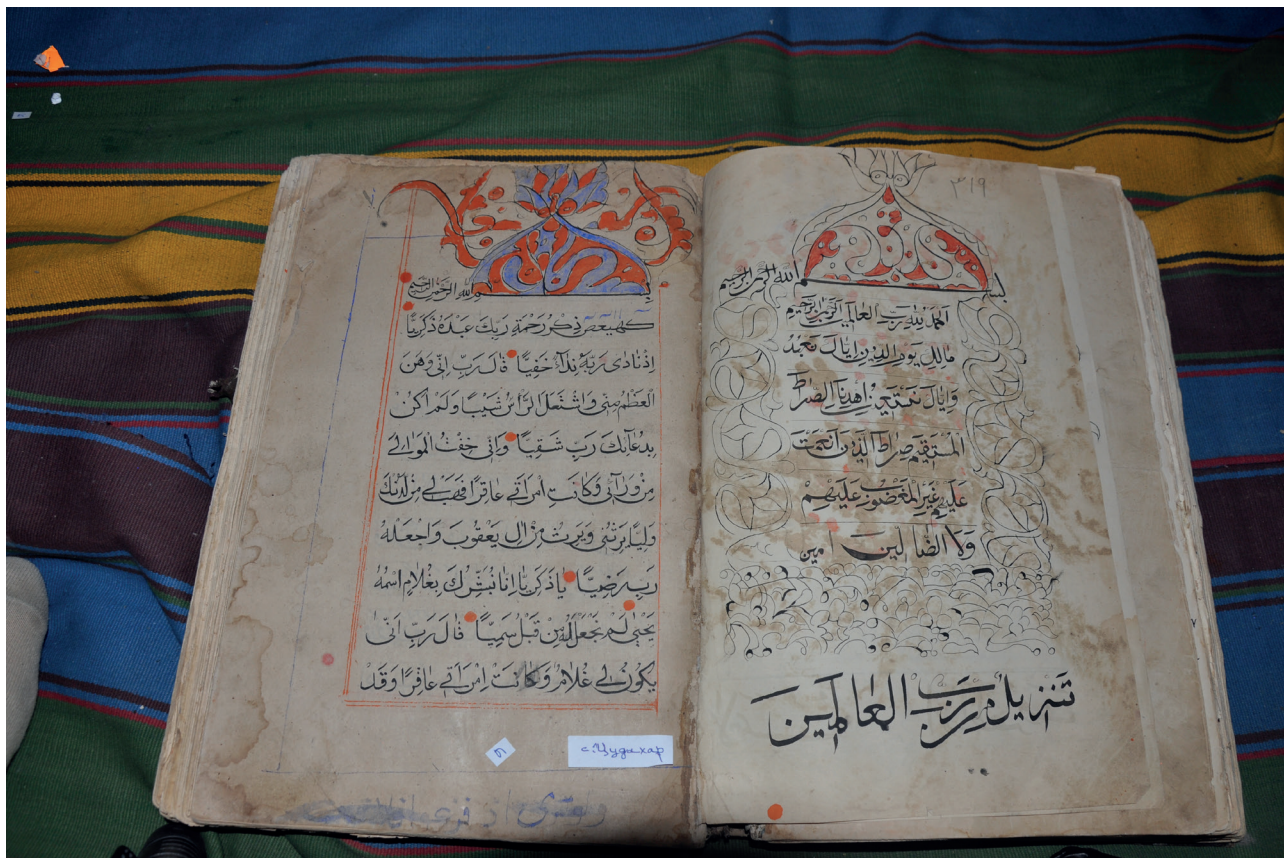 ٣١٩
بسم الله الرحمن الرحيم
الحمد لله رب العالمين الرحمن الرحيم
مالك يوم الدين اياك نعبد
واياك نستعين اهدنا الصراط
المستقيم صراط الذين انعمت
عليهم غير المغضوب عليهم
ولا الضالين امين
تنزيل من رب العالمين
بسم الله الرحمن الرحيم
كهيعص ذكر رحمة ربك عبده زكريا
اذ نادى ربه نداء خفيا قال رب انى وهن
العظم منى واشتعل الراس شيبا ولم اكن
بدعائك رب شقيا وانى خفت الموالى
من ورائى وكانت امراتى عاقرا فهب لى من لدنك
وليا يرثنى ويرث من ال يعقوب واجعله
رب رضيا يا زكريا انا نبشرك بغلام اسمه
يحيى لم نجعل له من قبل سميا قال رب انى
يكون لى غلام وكانت امراتى عاقرا وقد
с. Цудахар